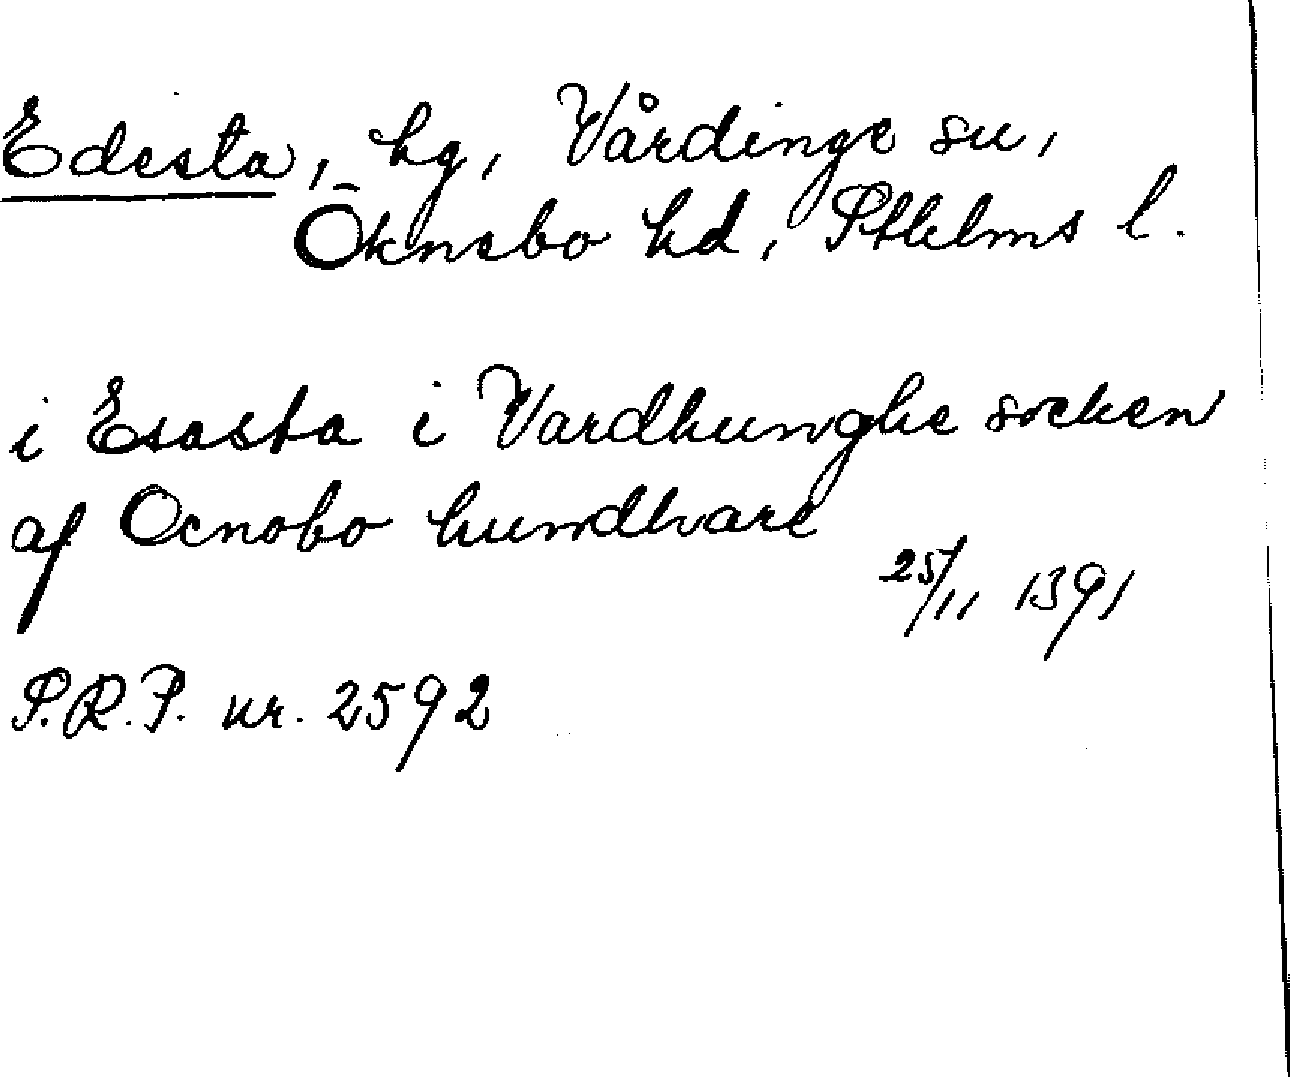 Edesta, hg, Vårdinge sn,
Öknebo hd, Sthlms l.
i Esasta i Vardhunghe socken
af Ocnobo hundhare
25/11 1391
S.R.P. nr. 2592